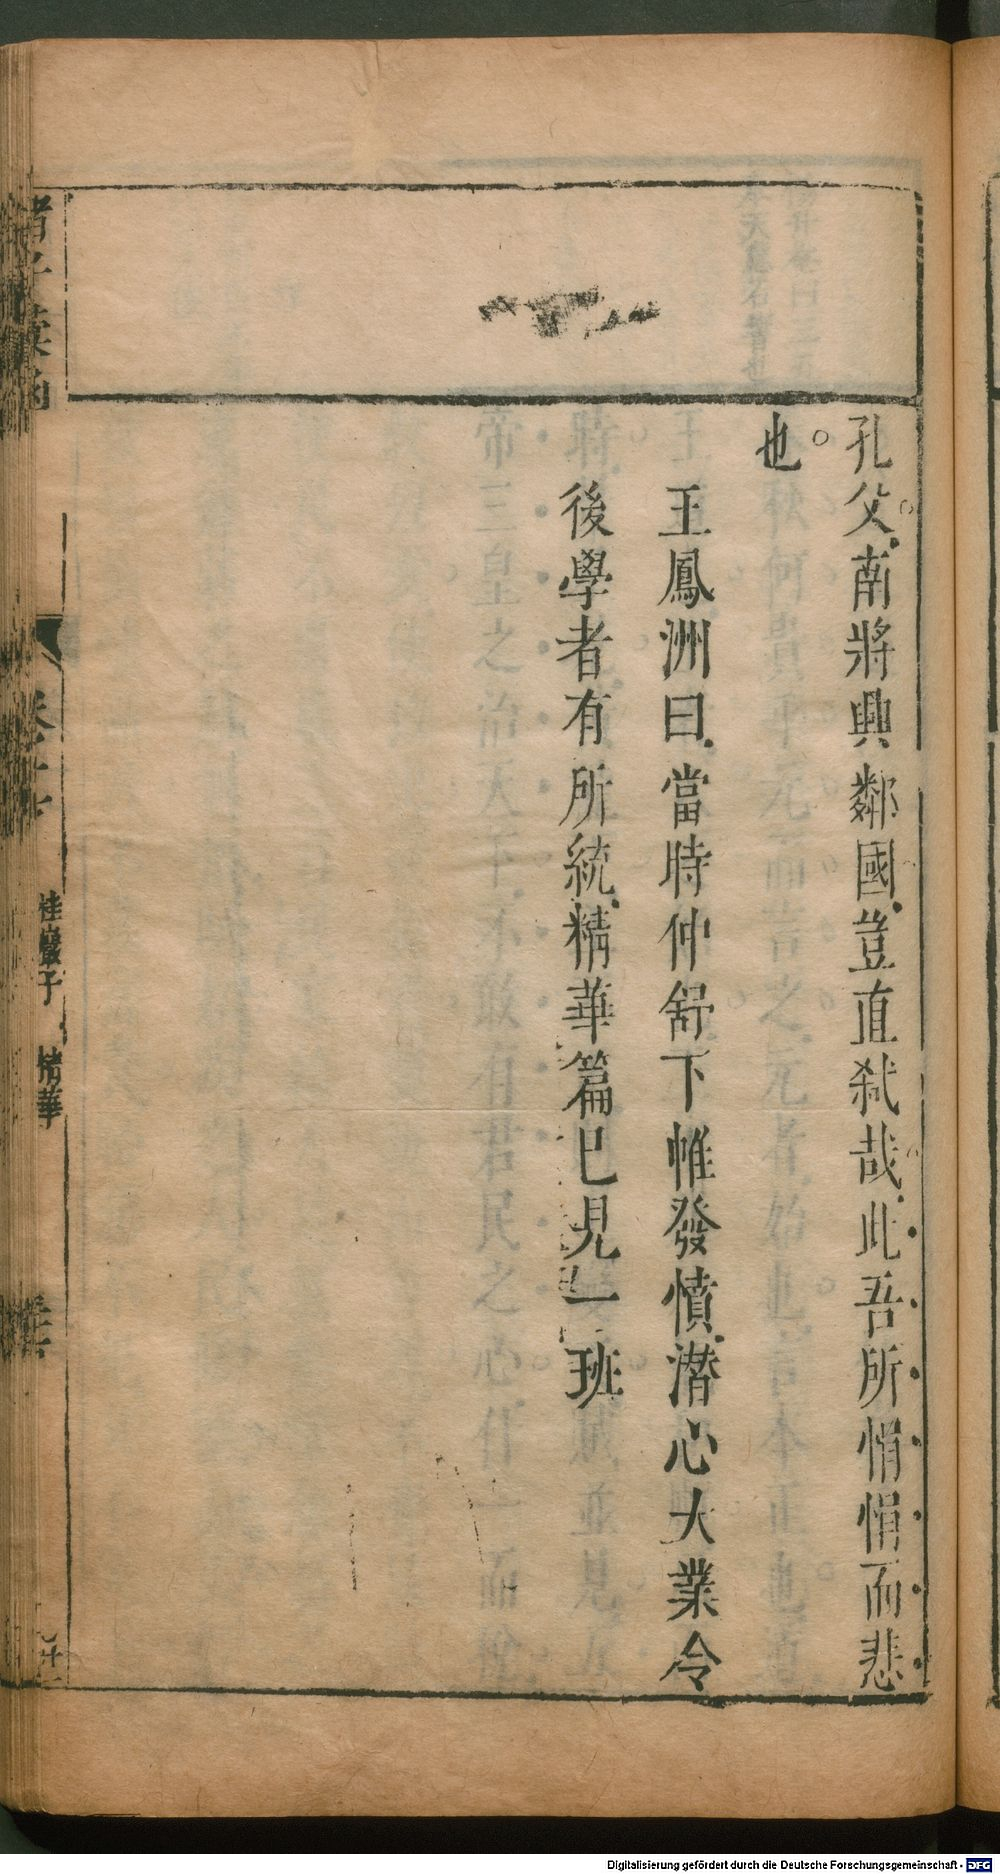 孔父南將興鄰國豈直弑哉此吾所悁悁而悲
也
王鳳洲曰當時仲舒下帷發憤潛心大業令
後學者有所統精華篇已見一班
諸子彙函
桂巖子 精華
Digitalisierung gefördert durch die Deutsche Forschungsgemeinschaft - DFG